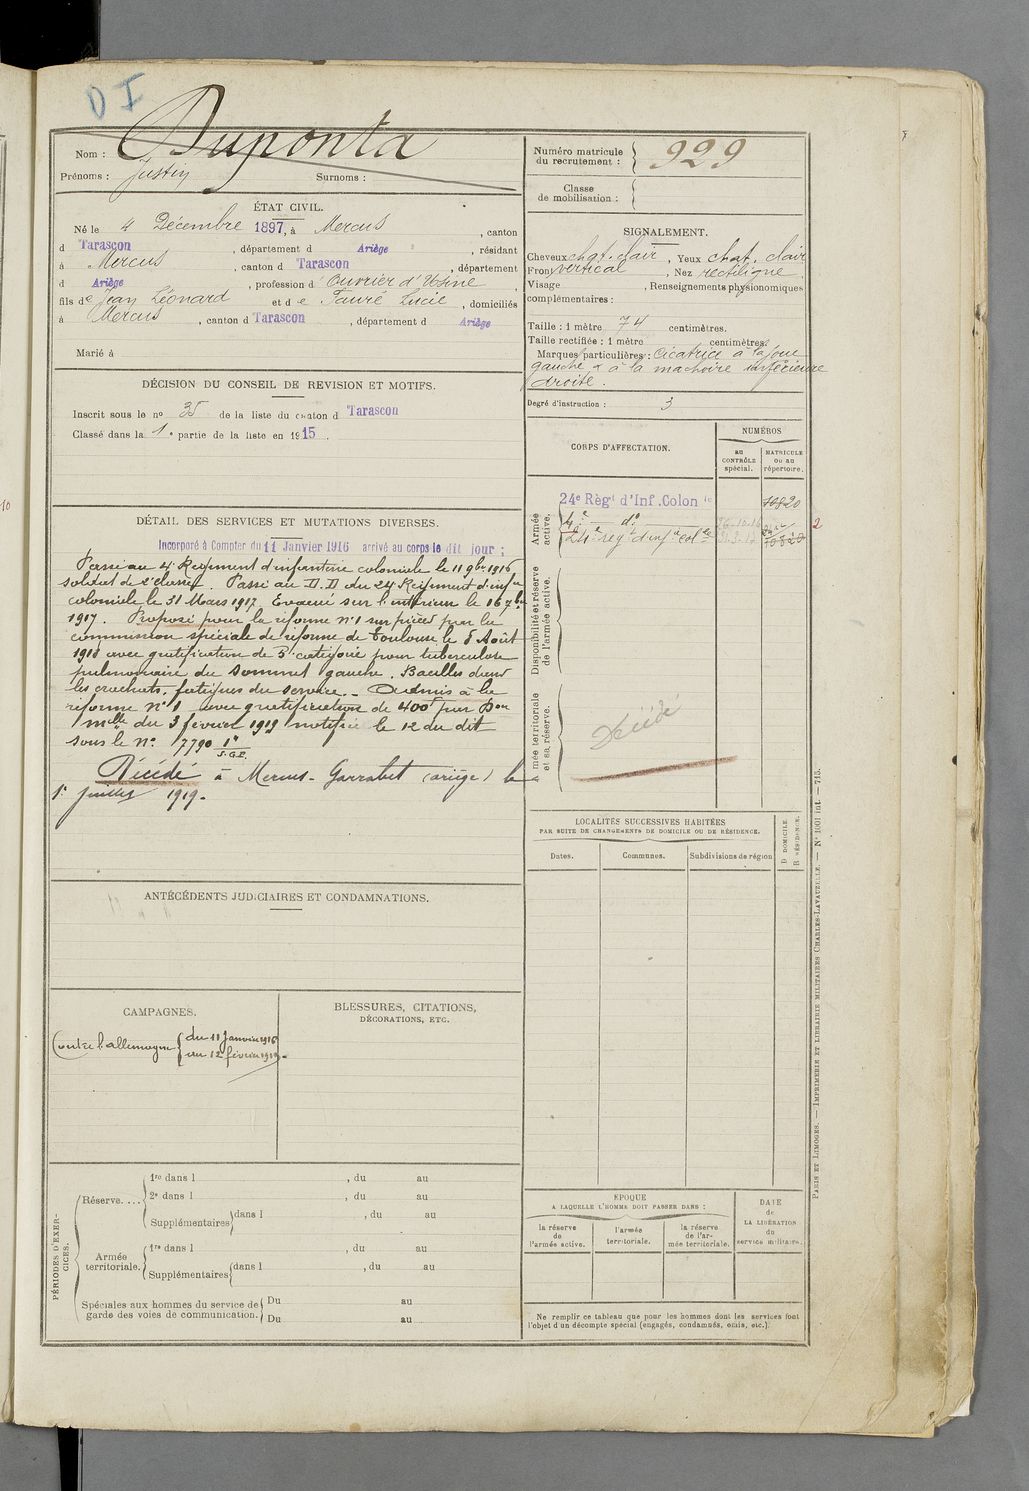 D I
Nom : Duponta
Prénoms : Justin Surnoms :
Numéro matricule
du recrutement : 929
Classe
de mobilisation :
ÉTAT CIVIL.
Né le 4 Décembre 1897, à Mercus, canton
d Tarascon, département d Ariège, résidant
à Mercus, canton d Tarascon, département
d Ariège, profession d'ouvrier d'Usine,
fils de Jean Léonard et de Fauré Lucie, domiciliés
à Mercus, canton d Tarascon, département d Ariège
Marié à
SIGNALEMENT.
Cheveux chat. clair, Yeux chat. clair
Front vertical, Nez rectiligne
Visage , Renseignements physionomiques
complémentaires :
Taille : 1 mètre 74 centimètres.
Taille rectifiée : 1 mètre centimètres.
Marques particulières : Cicatrice à la joue
gauche & à la machoire inférieure
droite.
Degré d'instruction : 3
DÉCISION DU CONSEIL DE REVISION ET MOTIFS.
Inscrit sous le no 35 de la liste du canton d Tarascon
Classé dans la 1e partie de la liste en 1915.
DÉTAIL DES SERVICES ET MUTATIONS DIVERSES.
Incorporé à Compter du 11 Janvier 1916 arrivé au corps le dit jour ;
Passé au 4e Régiment d'infanterie coloniale le 11 9bre 1916
soldat de 2e classe. Passé au D.D du 24 Régiment d'infie
coloniale le 31 Mars 1917. Evacué sur l'intérieur le 16 7bre
1917. Proposé pour la réforme n°1 sur pièces par la
commission spéciale de réforme de Toulouse le 8 Août
1918 avec gratification de 3e catégorie pour tuberculose
pulmonaire du sommet gauche. Bacilles dans
les crachats, fatigues du service. Admis à la
réforme n°1 avec gratification de 400f par Don
mlle du 3 février 1919 notifiée le 12 du dit
sous le N° 7790 1e
S.G.P.
Décédé à Mercus-Garrabet (ariège) le
1er juillet 1919.
CORPS D'AFFECTATION.
NUMÉROS
AU CONTRÔLE spécial.
MATRICULE ou au répertoire.
Armée active.
24e Régt d'Inf. Colonle 10820
4e do
24e régt d'infie colle 10820
2
Disponibilité et réserve de l'armée active.
Armée territoriale et sa réserve.
Décédé
LOCALITÉS SUCCESSIVES HABITÉES
PAR SUITE DE CHANGEMENTS DE DOMICILE OU DE RÉSIDENCE.
Dates. Communes. Subdivisions de région
D DOMICILE.
R RÉSIDENCE.
ANTÉCÉDENTS JUDICIAIRES ET CONDAMNATIONS.
CAMPAGNES.
Contre l'allemagne { du 11 Janvier 1916
au 12 février 1919.
BLESSURES, CITATIONS,
DÉCORATIONS, ETC.
PÉRIODES D'EXERCICES.
Réserve....
1re dans l , du au
2e dans l , du au
Supplémentaires dans l , du au
Armée territoriale.
1re dans l , du au
Supplémentaires dans l , du au
Spéciales aux hommes du service de
garde des voies de communication.
Du au
Du au
ÉPOQUE
A LAQUELLE L'HOMME DOIT PASSER DANS :
la réserve de l'armée active.
l'armée territoriale.
la réserve de l'armée territoriale.
DATE de LA LIBÉRATION du service militaire.
Ne remplir ce tableau que pour les hommes dont les services font
l'objet d'un décompte spécial (engagés, condamnés, omis, etc.).
PARIS ET LIMOGES. — IMPRIMERIE ET LIBRAIRIE MILITAIRES CHARLES-LAVAUZELLE. — N° 1001 int. — 715.